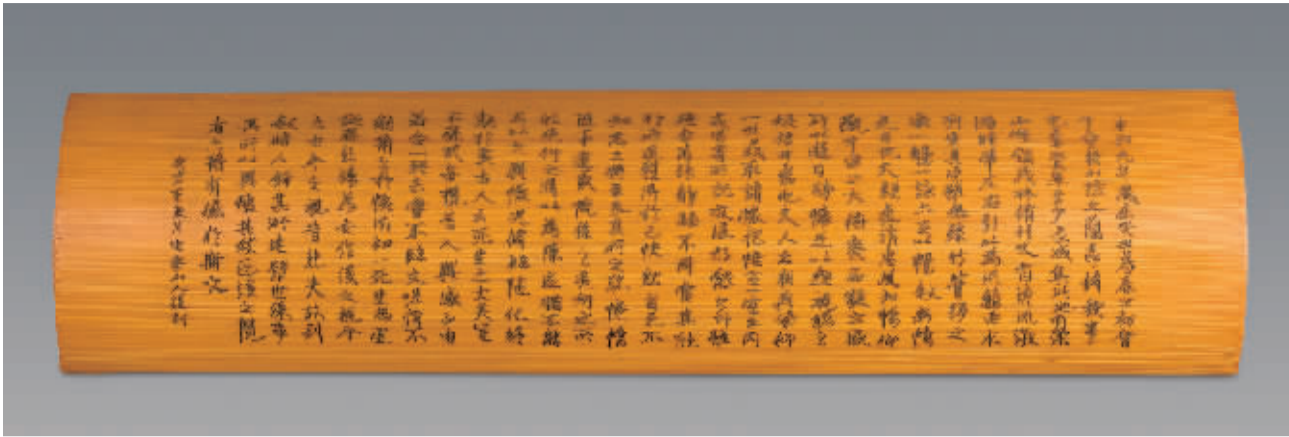 永和九年歲在癸丑暮春之初會
于會稽山陰之蘭亭脩稧事
也群賢畢至少長咸集此地有崇
山峻領茂林脩竹又有清流激
湍暎帶左右引以為流觴曲水
列坐其次雖無絲竹管弦之
盛一觴一詠亦足以暢敘幽情
是日也天朗氣清惠風和暢仰
觀宇宙之大俯察品類之盛
所以遊目騁懷足以極視聽之
娛信可樂也夫人之相與俯仰
一世或取諸懷抱悟言一室之內
或因寄所託放浪形骸之外雖
趣舍萬殊靜躁不同當其欣
於所遇暫得於己快然自足不
知老之將至及其所之既倦情
隨事遷感慨係之矣向之所
欣俛仰之間以為陳迹猶不能
不以之興懷況脩短隨化終
期於盡古人云死生亦大矣豈
不痛哉每攬昔人興感之由
若合一契未嘗不臨文嗟悼不
能喻之於懷固知一死生為虛
誕齊彭殤為妄作後之視今
亦由今之視昔悲夫故列
敘時人錄其所述雖世殊事
異所以興懷其致一也後之攬
者亦將有感於斯文